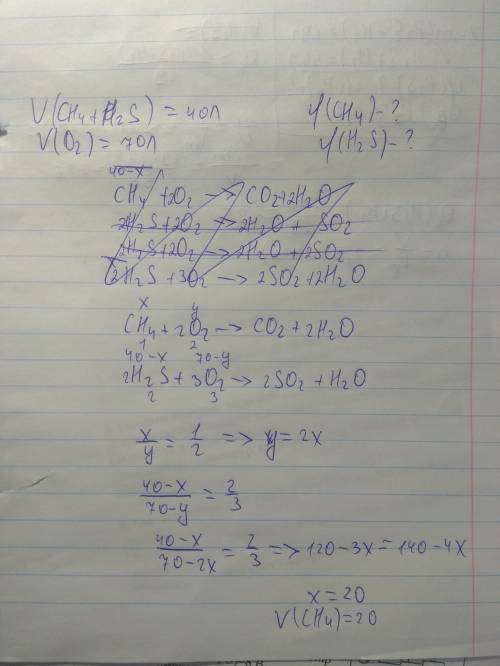 V(CH₄+H₂S) = 40л φ(CH₄)-?
V(O₂) = 70л φ(H₂S)-?
40-x
CH₄ + 2O₂ → CO₂+2H₂O
2H₂S+2O₂ → 2H₂O + SO₂
2H₂S+2O₂ → 2H₂O + 2SO₂
2H₂S + 3O₂ → 2SO₂ + 2H₂O
x y
CH₄ + 2O₂ → CO₂ + 2H₂O
1 2
40-x 70-y
2H₂S + 3O₂ → 2SO₂ + H₂O
2 3
x/y = 1/2 => y = 2x
40-x/70-y = 2/3
40-x/70-2x = 2/3 => 120-3x = 140-4x
x = 20
V(CH₄) = 20